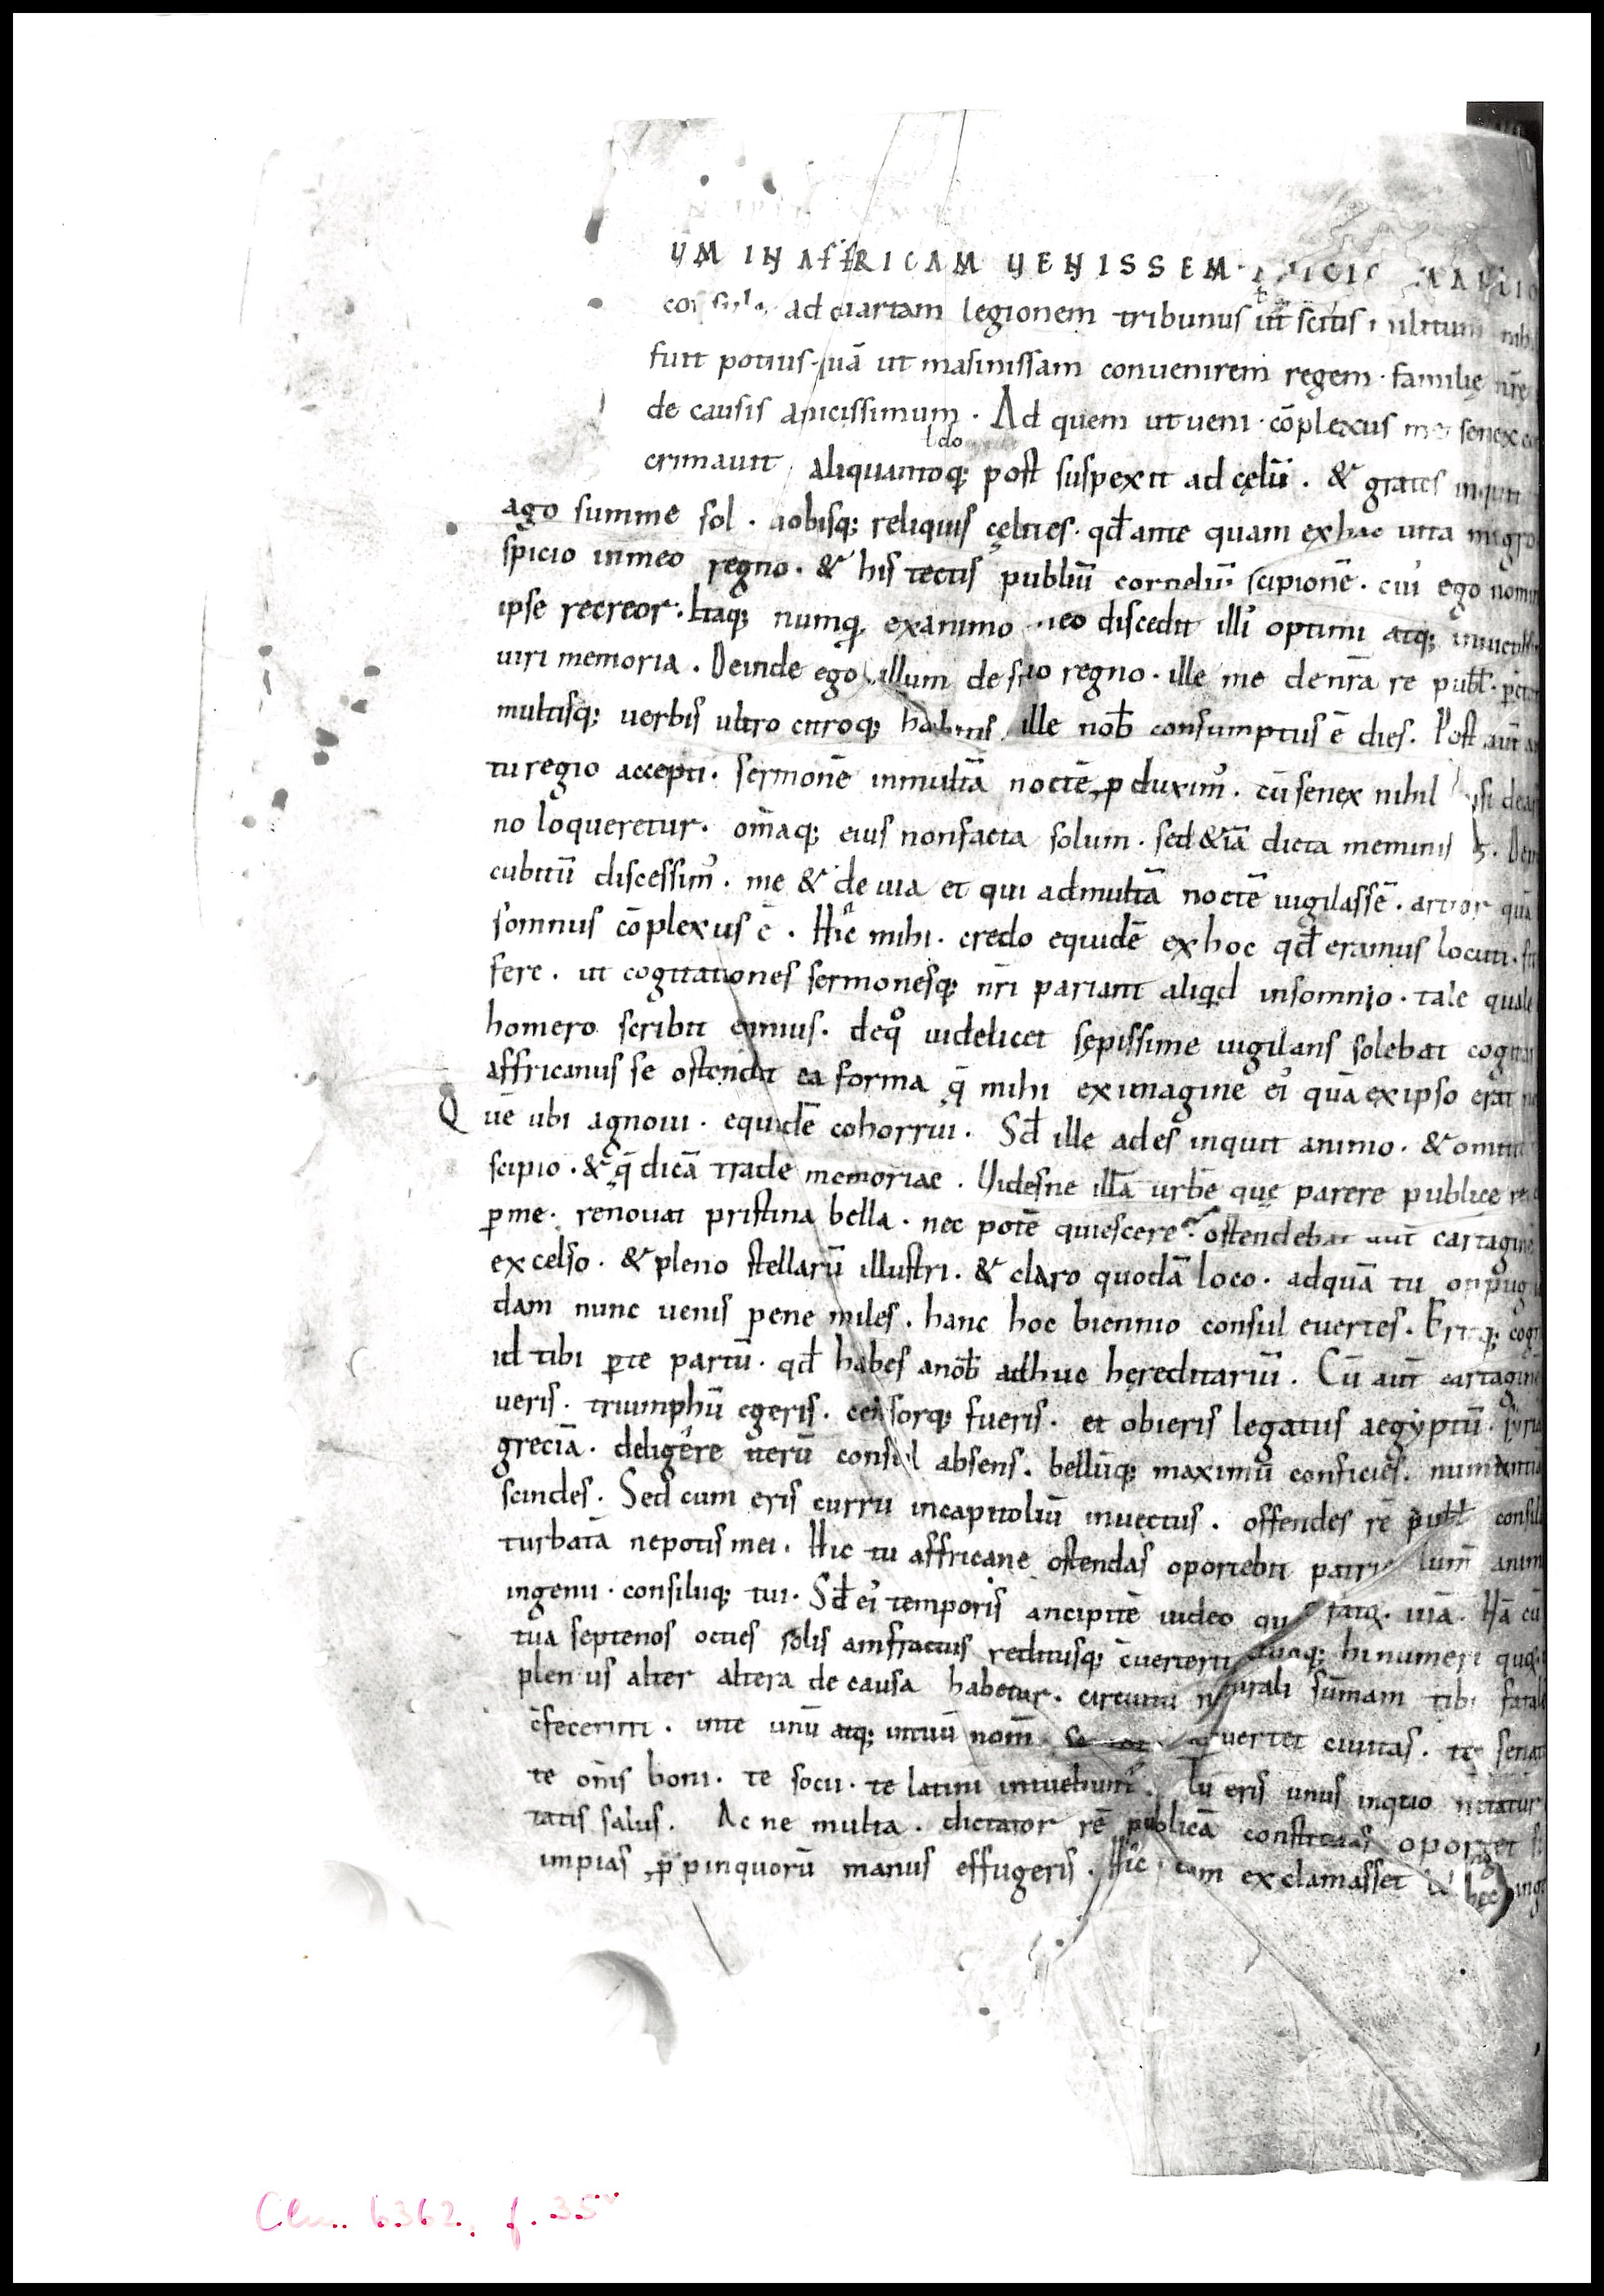 UM IN AFFRICAM UENISSEM
ad quartam legionem tribunus ut scitis militum
fuit potius quā ut masinissam convenirem regem · familię nr̄ę
de causis amicissimum · Ad quem ut ueni · cō̄plexus me senex
crimauit aliquantoq; post suspexit ad cęlū · & grates inquit
ldo
ago summe sol · uobisq; reliquis cęlites · qđ ante quam ex hac uita migro
spicio in meo regno · & his tectis publiū corneliū scipionē · cui' ego nomin
ipse recreor · Itaq; numq̄ ex animo meo discedit illi' optimi atq; inuictiss
uiri memoria · Deinde ego illum de suo regno · ille me de nr̄a re publ̄ · ꝑcon
multisq; uerbis ultro citroq; habitis ille nob̄ consumptus ē dies · Post aut̄
tu regio accepti · sermonē in multā noctē ꝓduxim' · cū senex nihil nisi de
no loqueretur · om̄aq; eius non facta solum · sed &iā dicta
cubitū discessim' · me & de uia et qui ad multā noctē uigilassē · artior quā
somnus cōplexus ē · Hic mihi · credo equidē ex hoc qđ eramus locuti ·
fere · ut cogitationes sermonesq; nr̄i pariant aliqid in somnio · tale quale
homero scribit ennius · de qo uidelicet sępissime uigilans solebat cogitar
affricanus se ostendit ea forma q̄ mihi ex imagine ei' quā ex ipso erat
Quē ubi agnoui · equidē cohorrui · Sđ ille ades inquit animo · & omitte
scipio · & q̄ dicā trade memoriae · Uidesne illā urbē quę parere publice
ꝑ me · renouat pristina bella · nec potē quiescere · ostendebat aut̄ cartaginē
excelso · & pleno stellarū illustri · & claro quodā loco · ad quā tu oppug
dam nunc uenis pene miles · hanc hoc biennio consul euertes · Eritq; cogn
id tibi ꝑ te partū · qđ habes a nob̄ adhuc hęreditariū · Cū aut̄ cartaginē
ueris · triumphū egeris · censorq; fueris · et obieris legatus aegyptū · syria
greciā · deligere iterū consul absens · bellūq; maximū conficies · numantiā
scindes · Sed cum eris curru in capitoliū inuectus · offendes rē publ̄ consili
turbatā nepotis mei · Hic tu affricane ostendas oportebit patrię lum̄ anim
ingenii · consiliiq; tui · Sđ ei' temporis ancipitē uideo uiā · Nā cū
tua septenos octies solis amfractus reditusq; c̄uerterit duoq; hi numeri
plenus alter altera de causa habetur · circuitu naturali sūmam tibi fatale
c̄fecerint · in te unū atq; in tuū nom̄ se uertet ciuitas · te senat
te om̄s boni · te socii · te latini intuebunt' · Tu eris unus in quo nitatur
tatis salus · Ac ne multa · dictator rē publicā constituas oportet
impias ꝓpinquorū manus effugeris · Hic cum exclamasset
Clm. 6362, f. 35v